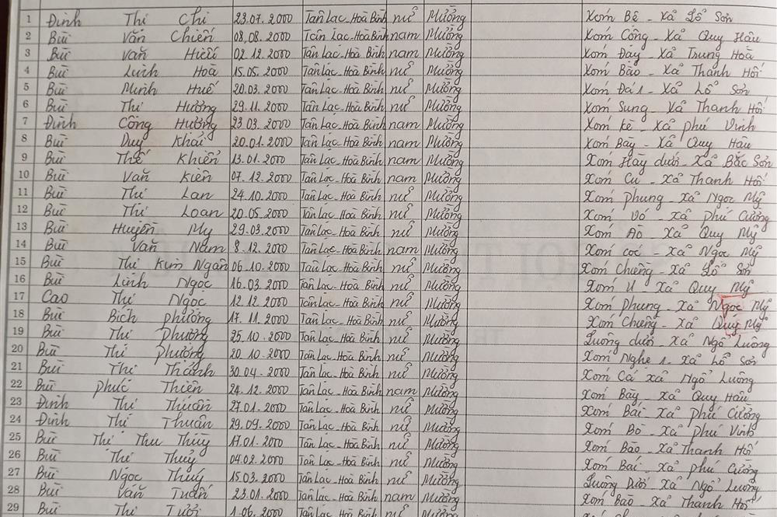 1 Đinh Thị Chi 23.07.2000 Tân Lạc-Hoà Bình nữ Mường Xóm Bệ - Xã Lỗ Sơn
2 Bùi Văn Chiến 08.08.2000 Tân Lạc-Hoà Bình nam Mường Xóm Cộng - Xã Quy Hậu
3 Bùi Văn Hiếu 02.12.2000 Tân Lạc-Hoà Bình nam Mường Xóm Đảy - Xã Trung Hoà
4 Bùi Linh Hoà 15.05.2000 Tân Lạc-Hoà Bình nữ Mường Xóm Bào - Xã Thanh Hối
5 Bùi Minh Huế 20.03.2000 Tân Lạc-Hoà Bình nữ Mường Xóm Đá 1 - Xã Lỗ Sơn
6 Bùi Thị Hương 29.11.2000 Tân Lạc-Hoà Bình nữ Mường Xóm Sung - Xã Thanh Hối
7 Đinh Công Hương 23.03.2000 Tân Lạc-Hoà Bình nam Mường Xóm kè - Xã phú Vinh
8 Bùi Duy Khải 20.01.2000 Tân Lạc-Hoà Bình nam Mường Xóm Bậy - Xã Quy Hậu
9 Bùi Thế Khiển 13.01.2000 Tân Lạc-Hoà Bình nam Mường Xóm Hày dưới - Xã Bắc Sơn
10 Bùi Văn Kiên 07.12.2000 Tân Lạc-Hoà Bình nam Mường Xóm Cú - Xã Thanh Hối
11 Bùi Thị Lan 24.10.2000 Tân Lạc-Hoà Bình nữ Mường Xóm phung - Xã Ngọc Mỹ
12 Bùi Thị Loan 20.05.2000 Tân Lạc-Hoà Bình nữ Mường Xóm Vó - Xã phú Cường
13 Bùi Huyền My 29.03.2000 Tân Lạc-Hoà Bình nữ Mường Xóm Áo - Xã Quy Mỹ
14 Bùi Văn Nam 8.12.2000 Tân Lạc-Hoà Bình nam Mường Xóm cóc - Xã Ngọc Mỹ
15 Bùi Thị Kim Ngân 06.10.2000 Tân Lạc-Hoà Bình nữ Mường Xóm Chềng - Xã Lỗ Sơn
16 Bùi Linh Ngọc 16.03.2000 Tân Lạc-Hoà Bình nữ Mường Xóm U - Xã Quy Mỹ
17 Cao Thị Ngọc 12.12.2000 Tân Lạc-Hoà Bình nữ Mường Xóm Phung - Xã Ngọc Mỹ
18 Bùi Bích phương 17.11.2000 Tân Lạc-Hoà Bình nữ Mường Xóm Chiềng - Xã Quy Mỹ
19 Bùi Thị Phương 25.10.2000 Tân Lạc-Hoà Bình nữ Mường Luông dưới - Xã Ngổ Luông
20 Bùi Thị phương 20.10.2000 Tân Lạc-Hoà Bình nữ Mường Xóm Nghe 1 - Xã Lỗ Sơn
21 Bùi Thị Thảnh 30.04.2000 Tân Lạc-Hoà Bình nữ Mường Xóm Cá Xã Ngổ Luông
22 Bùi phúc Thiên 24.12.2000 Tân Lạc-Hoà Bình nam Mường Xóm Bậy - Xã Quy Hậu
23 Đinh Thị Thuân 27.01.2000 Tân Lạc-Hoà Bình nữ Mường Xóm Bái - Xã phú Cường
24 Đinh Thị Thuân 29.09.2000 Tân Lạc-Hoà Bình nữ Mường Xóm Bò - Xã phú Vinh
25 Bùi Thị Thu Thuỷ 17.01.2000 Tân Lạc-Hoà Bình nữ Mường Xóm Bào - Xã Thanh Hối
26 Bùi Thị Thuỷ 04.02.2000 Tân Lạc-Hoà Bình nữ Mường Xóm Bái - Xã phú Cường
27 Bùi Ngọc Thuý 15.03.2000 Tân Lạc-Hoà Bình nữ Mường Luông Dưới - Xã Ngổ Luông
28 Bùi Văn Tuấn 23.01.2000 Tân Lạc-Hoà Bình nam Mường Xóm Bào - Xã Thanh Hối
29 Bùi Thị Tươi 1.06.2000 Tân Lạc-Hoà Bình nữ Mường